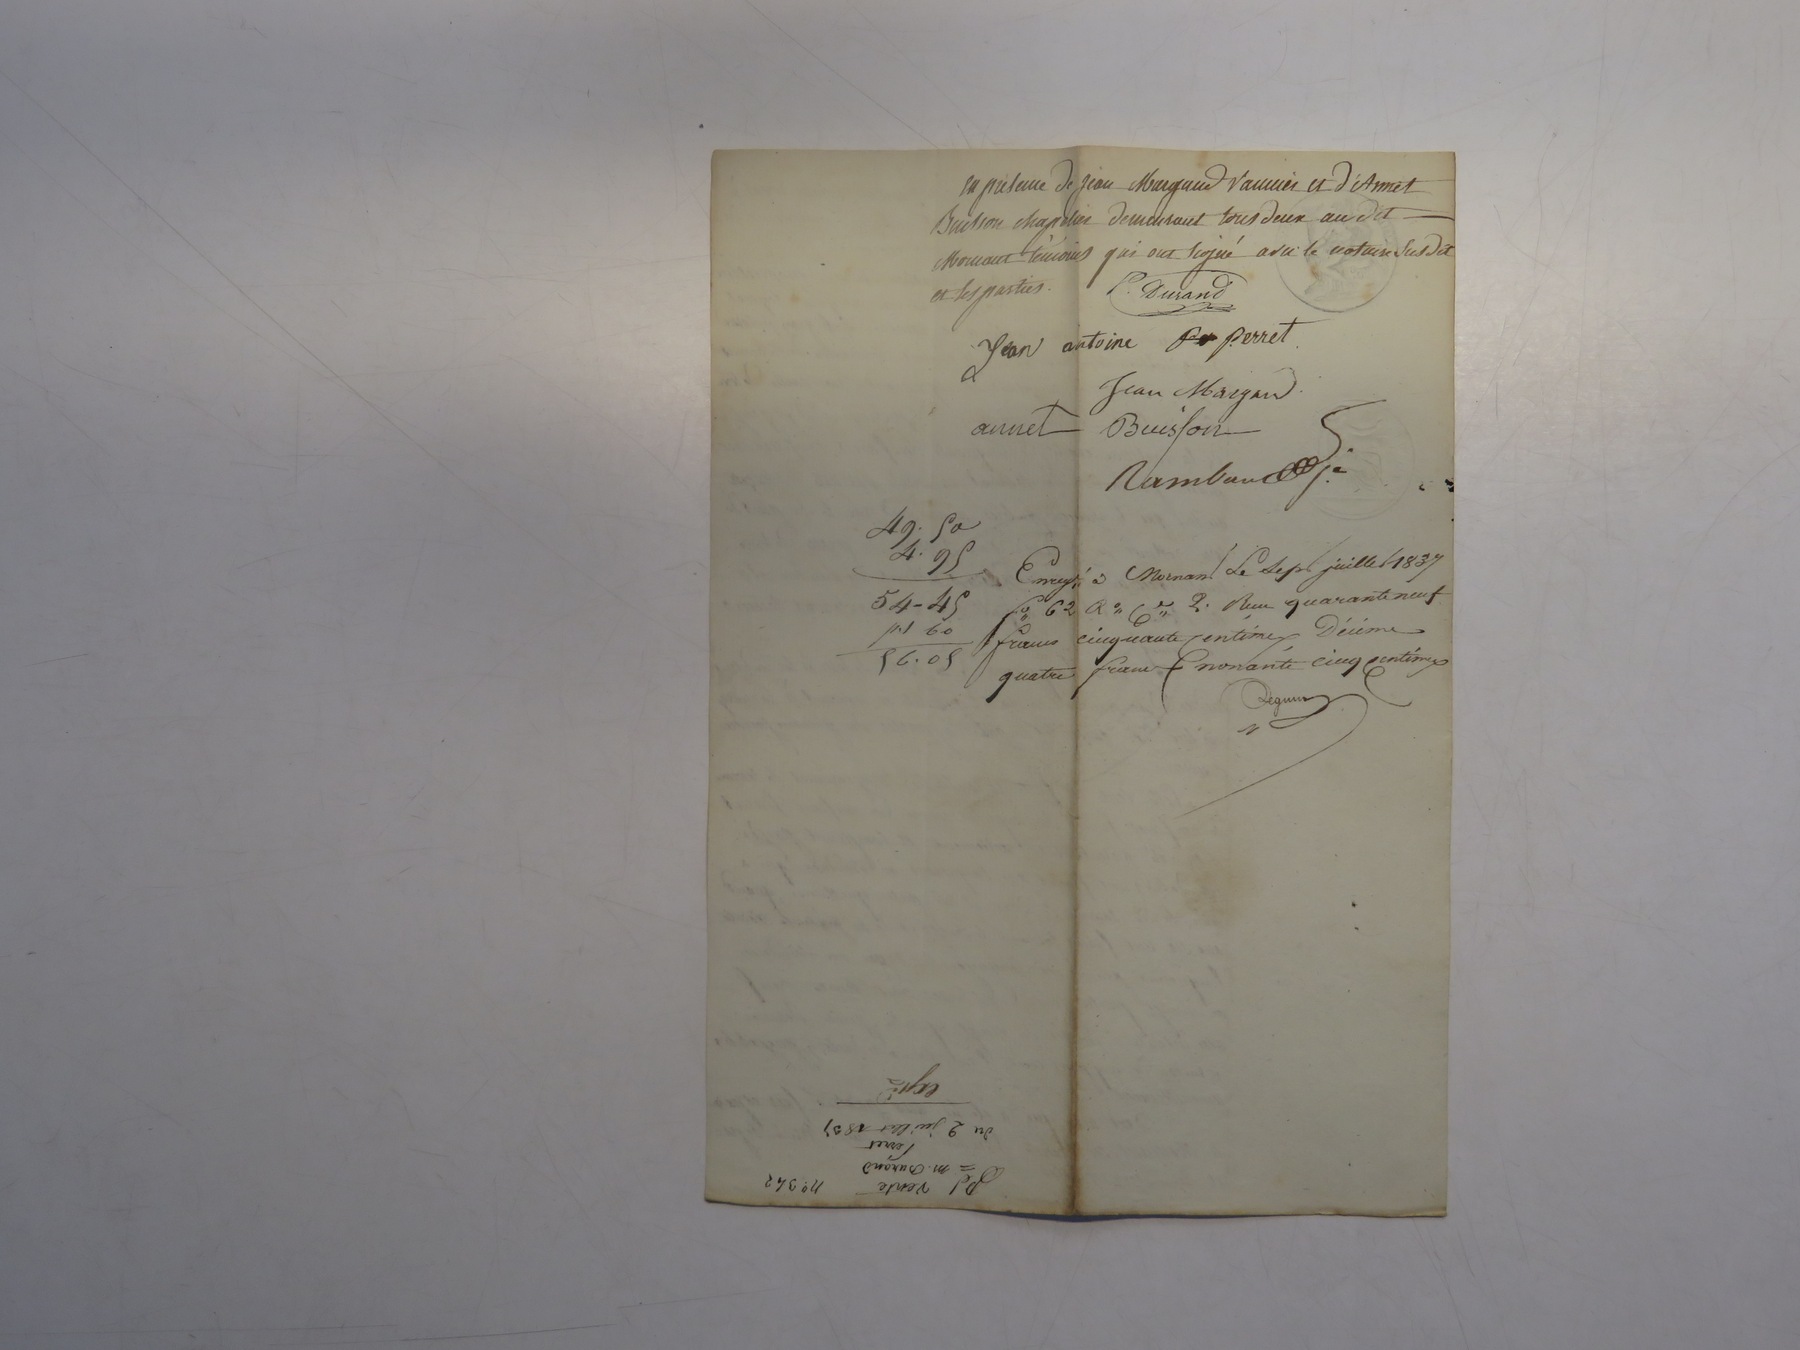 en présence de Jean Margand Vannier et d'Annet
Buisson chapelier demeurant tous deux au dit
Mornant témoins qui ont signé avec le notaire susdit
et les parties.
P. Durand
Jean antoine Per Perret
Jean Margand
annet Buisson
Rambaud
49. 50
4. 95
54-45
1 60
56.05
Enregté à Mornant Le sept juillet 1837
fo 62 Ro Ce 2. Reçu quarante neuf
francs cinquante centimes Décime
quatre francs nonante cinq centimes
No. 342
Vente
m. Durand
Perret
du 2 juillet 1837